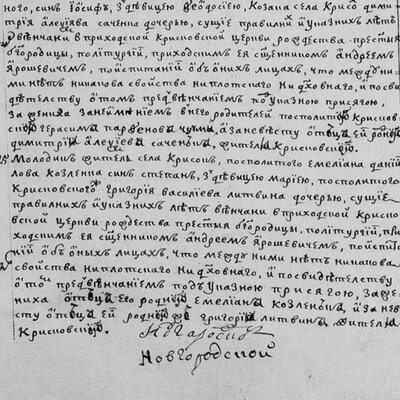 ного, синъ Іѡсифъ, з дѣвицею Ѳеодосіею, козака села Крисѡ димит
трія алеѯіева саченка дочерью, сущіе правилнихъ иуказнихъ лѣтъ
вѣнчани в приходской Крисковской церкви рождества престыя
бгородицы, по литургіи, приходскимъ ея сщенникомъ андреемъ
Ярошевичемъ, поистязаніи обоѡнихъ лицахъ, что между ни
ми нѣтъ никакова свойства ни плотскаго ни дховнаго, и посви
дѣтелству отомъ предъ вѣнчаніемъ подъ указною присягою,
за жениха за неимѣніемъ внего родителей посполитій Крисков
скій герасимъ парѳеновъ чупта, а за невѣсту отецъ ей родній
димитрій алеѯіевъ саченокъ, жители Крисковскіе.
25 Молодикъ житель села Крисокъ, посполитого емеліана даній
лова козленка синъ стефанъ, з дѣвицею маріею, посполитого
Крисковского григорія василіева литвина дочерью, сущіе
правилнихъ иуказнихъ лѣтъ вѣнчани в приходской Криско
вской церкви рождества престыя бгородицы, по литургіи, при
ходскимъ ея сщенникомъ андреемъ Ярошевичемъ, поистяза
ніи обоѡныхъ лицахъ, что между ними нѣтъ никакова
свойства ни плотскаго ни дховнаго, и посвидѣтелству
отомъ предъ вѣнчаніемъ подъ указною присягою, за же
ниха отецъ его родній емеліанъ козленокъ, и за невѣ
сту отецъ ей родній же григорій литвинъ жители
Крисковскіе.
Новгородской